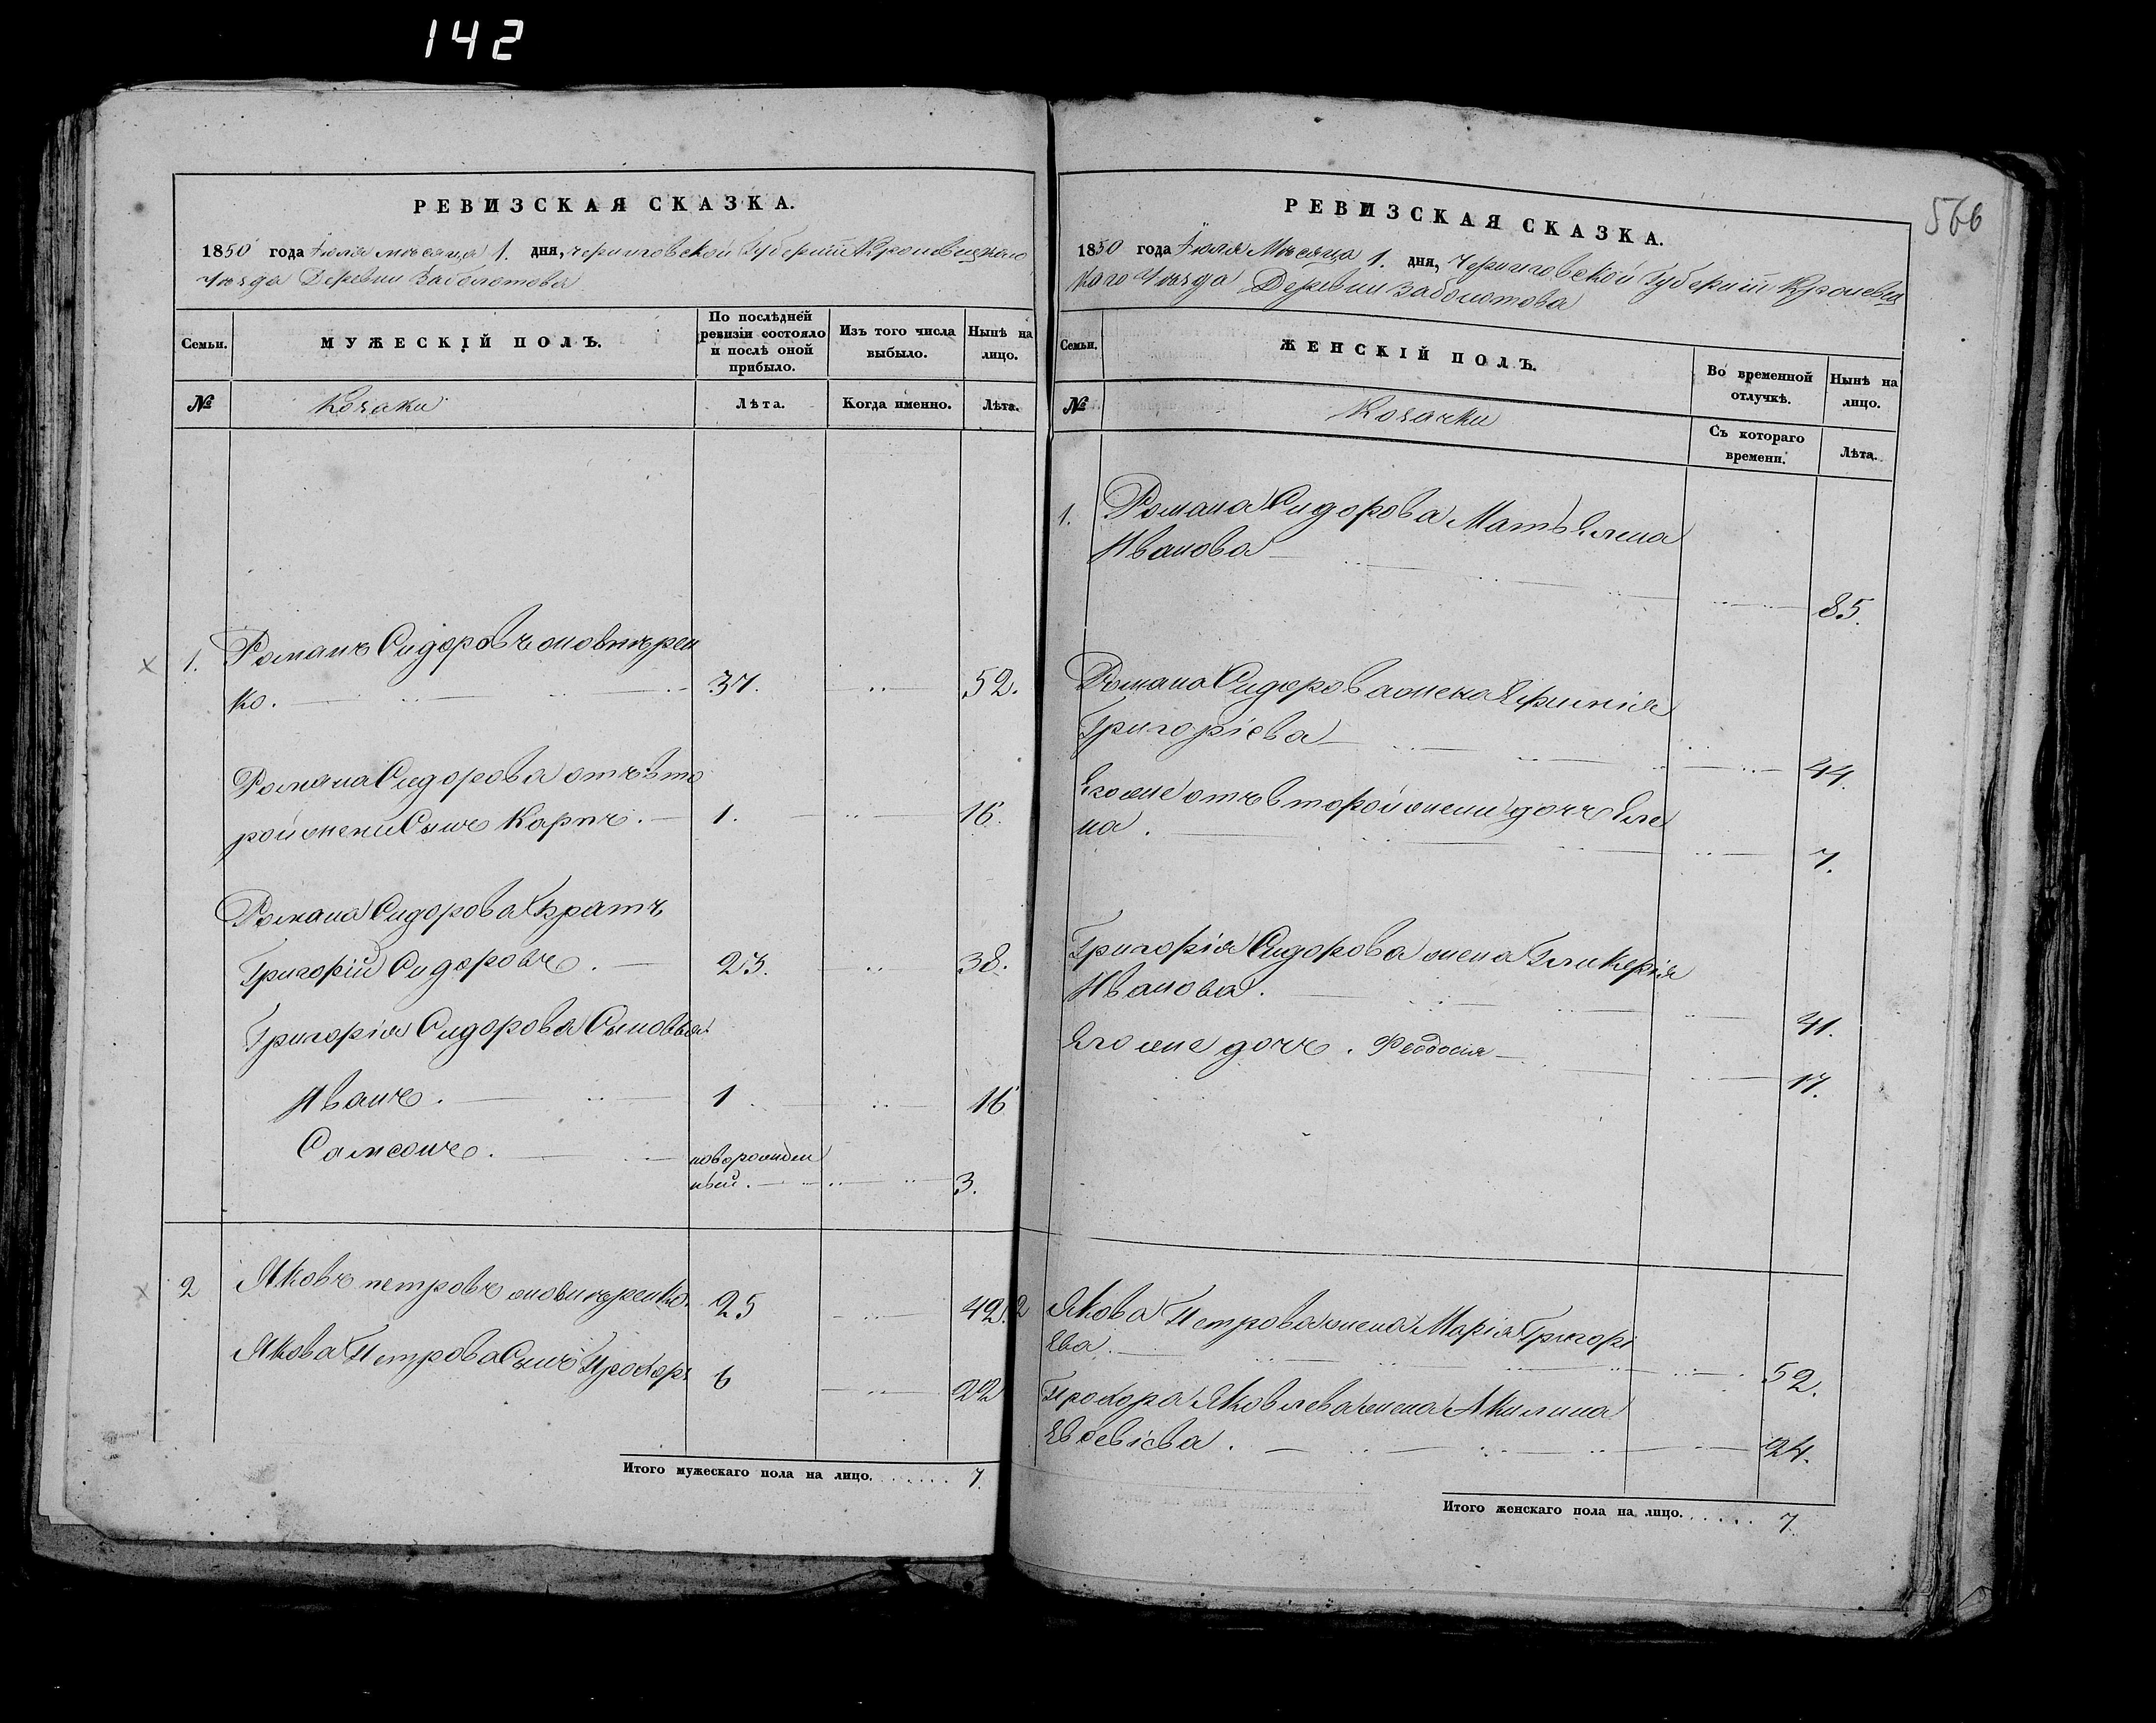 142
РЕВИЗСКАЯ СКАЗКА.
1850 года Іюля мѣсяца 1. дня, Черниговской Губерніи Кролевецкаго
Уѣзда Деревни Заболотова
Семьи.
МУЖЕСКІЙ ПОЛЪ.
По послѣдней
ревизіи состояло
и послѣ оной
прибыло.
Изъ того числа
выбыло.
Нынѣ на
лицо.
№
Козаки
Лѣта.
Когда именно.
Лѣта.
1. Романъ Сидоровъ
ко. 37. 52.
Романа Сидорова отъ вто
рой жены Сынъ Карпъ. 1. 16.
Романа Сидорова братъ
Григорій Сидоровъ. 23. 38.
Григорія Сидорова Сыновья
Иванъ. 1. 16
Самсонъ. новорожден
ный. 3.
2 Яковъ Петровъ 25 42.
Якова Петрова Сынъ Прохоръ 6 22
Итого мужескаго пола на лицо. 7.
566
РЕВИЗСКАЯ СКАЗКА.
1850 года Іюля Мѣсяца 1. дня, Черниговской Губерніи Кролевец
каго Уѣзда Деревни Заболотова
Семьи.
ЖЕНСКІЙ ПОЛЪ.
Во временной
отлучкѣ.
Нынѣ на
лицо.
№
Козачки
Съ котораго
времени.
Лѣта.
1. Романа Сидорова Мать Елена
Иванова
85.
Романа Сидорова жена Ефимія
Григоріева
44.
Его же отъ второй жены дочь Еле
на.
7.
Григорія Сидорова жена Гликерія
Иванова.
41.
Его же дочь. Феодосия
17.
2 Якова Петрова жена Марія Григорі
ева.
52.
Прохора Яковлева жена Акилина
Евсевіева. 24.
Итого женскаго пола на лицо. 7.